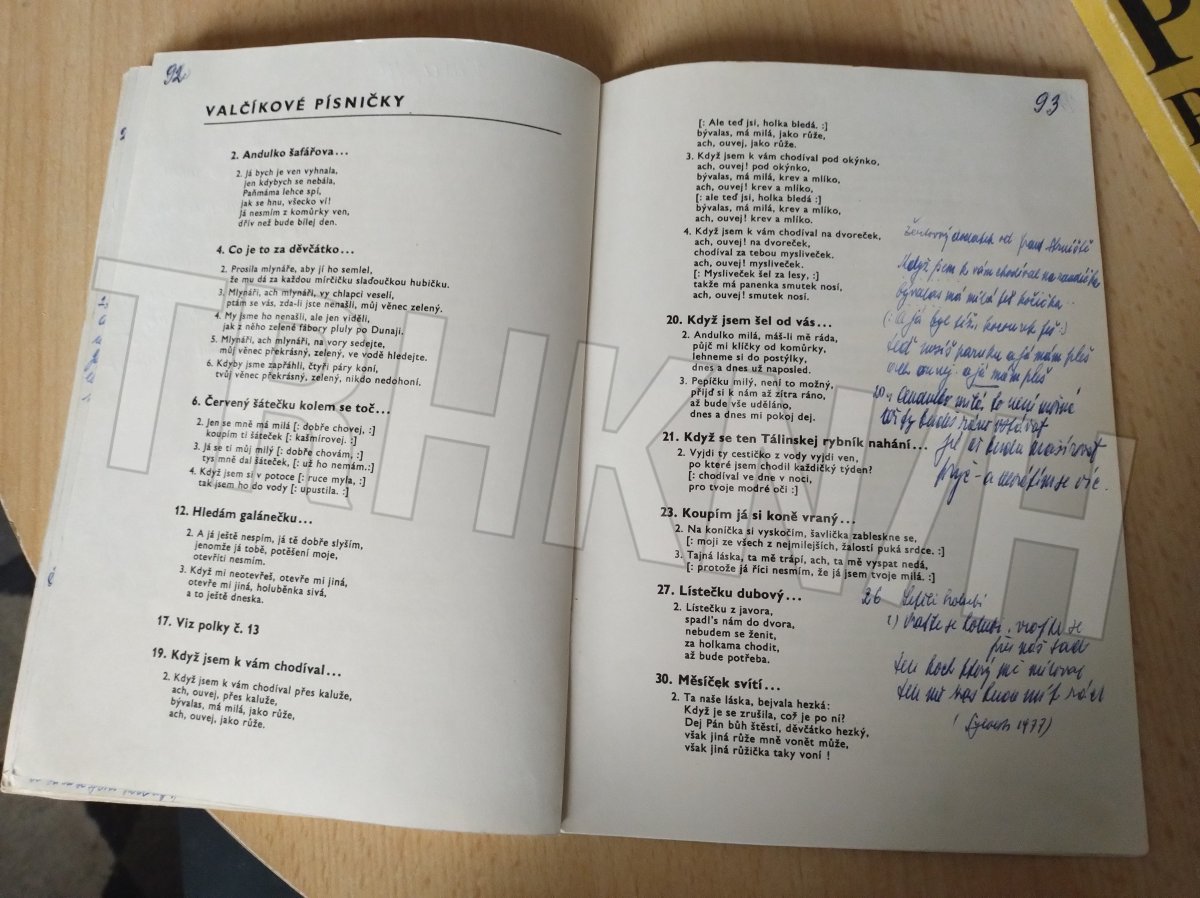 92
VALČÍKOVÉ PÍSNIČKY
2. Andulko šafářova...
2. Já bych je ven vyhnala,
jen kdybych se nebála,
Paňmáma lehce spí,
jak se hnu, všecko ví!
Já nesmím z komůrky ven,
dřív než bude bílej den.
4. Co je to za děvčátko...
2. Prosila mlynáře, aby jí ho semlel,
že mu dá za každou mírčičku slaďoučkou hubičku.
3. Mlynáři, ach mlynáři, vy chlapci veselí,
ptám se vás, zda-li jste nenašli, můj věnec zelený.
4. My jsme ho nenašli, ale jen viděli,
jak z něho zelené fábory pluly po Dunaji.
5. Mlynáři, ach mlynáři, na vory sedejte,
můj věnec překrásný, zelený, ve vodě hledejte.
6. Kdyby jsme zapřáhli, čtyři páry koní,
tvůj věnec překrásný, zelený, nikdo nedohoní.
6. Červený šátečku kolem se toč...
2. Jen se mně má milá [: dobře chovej, :]
koupím ti šáteček [: kašmírovej. :]
3. Já se ti můj milý [: dobře chovám, :]
tys mně dal šáteček, [: už ho nemám.:]
4. Když jsem si v potoce [: ruce myla, :]
tak jsem ho do vody [: upustila. :]
12. Hledám galánečku...
2. A já ještě nespím, já tě dobře slyším,
jenomže já tobě, potěšení moje,
otevříti nesmím.
3. Když mi neotevřeš, otevře mi jiná,
otevře mi jiná, holuběnka sivá,
a to ještě dneska.
17. Viz polky č. 13
19. Když jsem k vám chodíval...
2. Když jsem k vám chodíval přes kaluže,
ach, ouvej, přes kaluže,
bývalas, má milá, jako růže,
ach, ouvej, jako růže.
93
[: Ale teď jsi, holka bledá, :]
bývalas, má milá, jako růže,
ach, ouvej, jako růže.
3. Když jsem k vám chodíval pod okýnko,
ach, ouvej! pod okýnko,
bývalas, má milá, krev a mlíko,
ach, ouvej! krev a mlíko,
[: ale teď jsi, holka bledá :]
bývalas, má milá, krev a mlíko,
ach, ouvej! krev a mlíko.
4. Když jsem k vám chodíval na dvoreček,
ach, ouvej! na dvoreček,
chodíval za tebou mysliveček.
ach, ouvej! mysliveček.
[: Mysliveček šel za lesy, :]
takže má panenka smutek nosí,
ach, ouvej! smutek nosí.
20. Když jsem šel od vás...
2. Andulko milá, máš-li mě ráda,
půjč mi klíčky od komůrky,
lehneme si do postýlky,
dnes a dnes už naposled.
3. Pepíčku milý, není to možný,
přijď si k nám až zítra ráno,
až bude vše uděláno,
dnes a dnes mi pokoj dej.
21. Když se ten Tálinskej rybník nahání...
2. Vyjdi ty cestičko z vody vyjdi ven,
po které jsem chodil každičký týden?
[: chodíval ve dne v noci,
pro tvoje modré oči :]
23. Koupím já si koně vraný...
2. Na koníčka si vyskočím, šavlička zableskne se,
[: moji ze všech z nejmilejších, žalostí puká srdce. :]
3. Tajná láska, ta mě trápí, ach, ta mě vyspat nedá,
[: protože já říci nesmím, že já jsem tvoje milá. :]
27. Lístečku dubový...
2. Lístečku z javora,
spadl's nám do dvora,
nebudem se ženit,
za holkama chodit,
až bude potřeba.
30. Měsíček svítí...
2. Ta naše láska, bejvala hezká:
Když je se zrušila, což je po ní?
Dej Pán bůh štěstí, děvčátko hezký,
však jiná růže mně vonět může,
však jiná růžička taky voní !
Když jsem k vám chodíval na
bývalas má milá
teď nosíš paruku a já mám pleš
ach ouvej a já mám pleš
20. Andulko milá, to není možné
26 Letěli holubi
přes náš sad
1977)
TRHKNIH